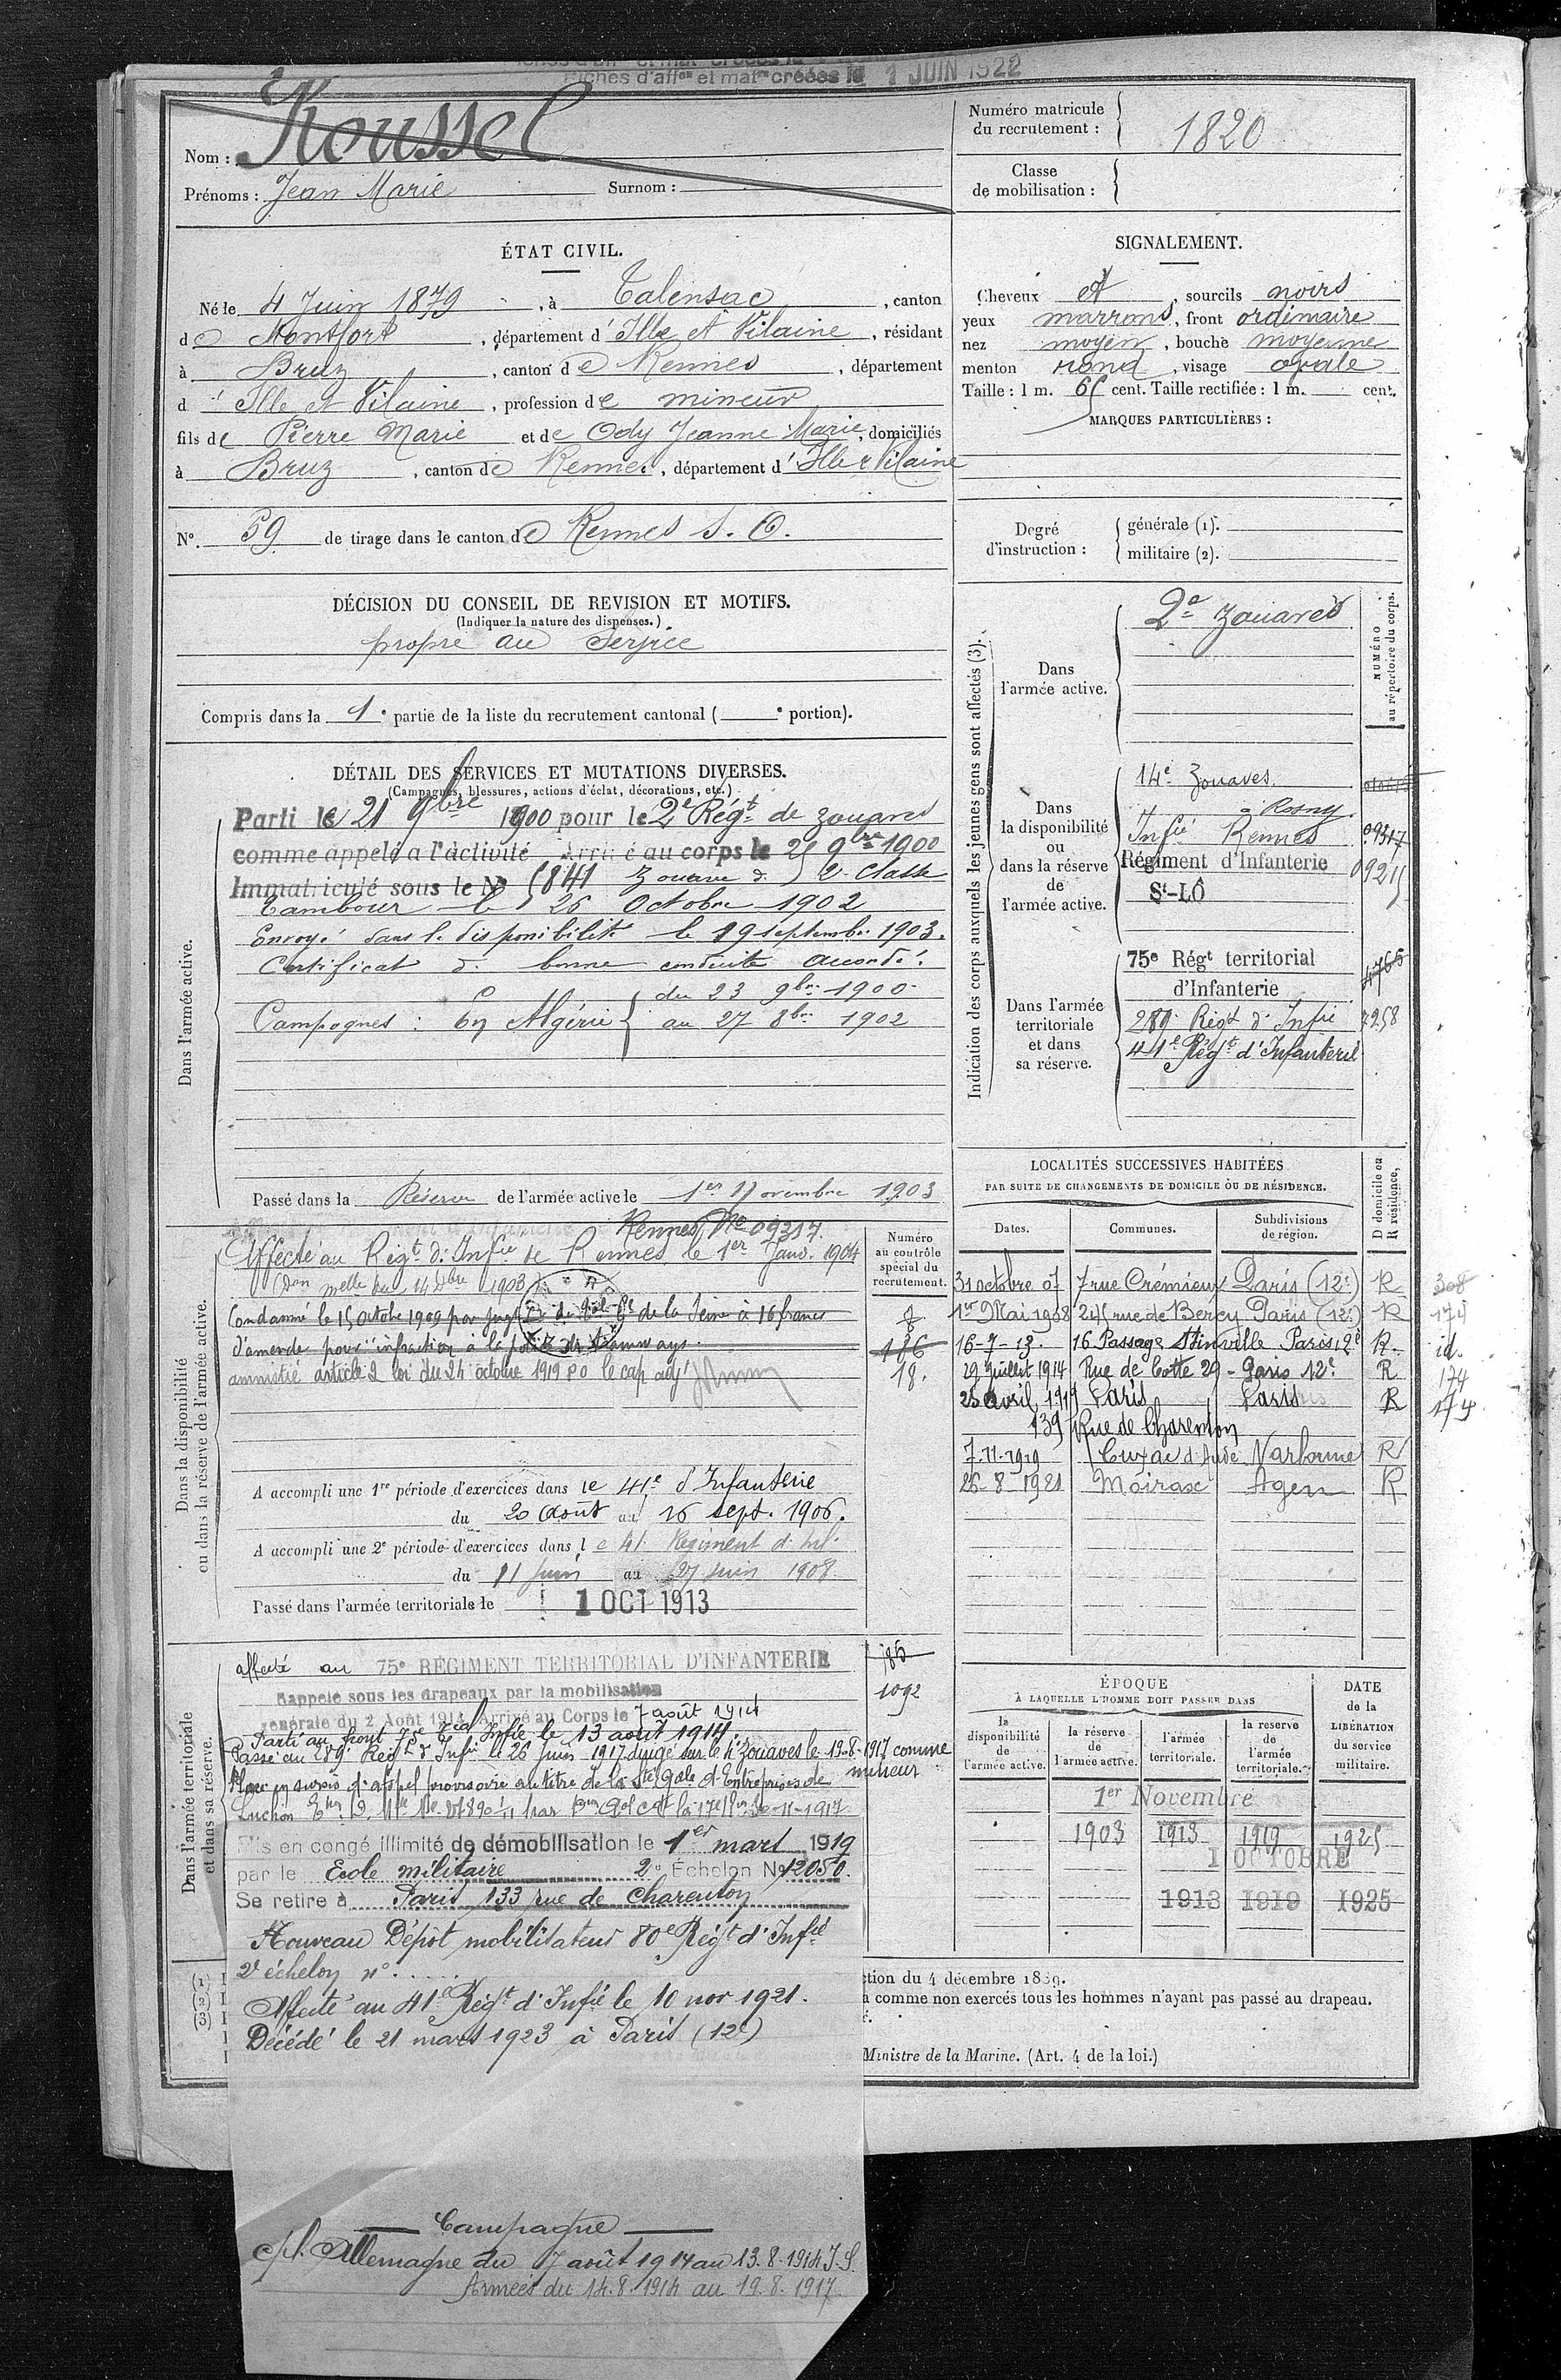 Fiches d'affon et matre créées le 1 JUIN 1922
Nom : Roussel
Prénoms : Jean Marie Surnom :
Numéro matricule
du recrutement : 1820
Classe
de mobilisation :
ÉTAT CIVIL.
Né le 4 Juin 1879, à Talensac, canton
de Montfort, département d'Ille et Vilaine, résidant
à Bruz, canton de Rennes, département
d'Ille et Vilaine, profession de mineur
fils de Pierre Marie et de Ody Jeanne Marie, domiciliés
à Bruz, canton de Rennes, département d'Ille & Vilaine
N°. 59 de tirage dans le canton de Rennes S. O.
SIGNALEMENT.
Cheveux et, sourcils noirs
yeux marrons, front ordinaire
nez moyen, bouche moyenne
menton rond, visage ovale
Taille : 1 m. 65 cent. Taille rectifiée : 1 m. cent.
MARQUES PARTICULIÈRES :
Degré
d'instruction :
générale (1).
militaire (2).
DÉCISION DU CONSEIL DE REVISION ET MOTIFS.
(Indiquer la nature des dispenses.)
propre au service
Compris dans la 1e partie de la liste du recrutement cantonal ( e portion).
DÉTAIL DES SERVICES ET MUTATIONS DIVERSES.
(Campagnes, blessures, actions d'éclat, décorations, etc.)
Dans l'armée active.
Parti le 21 9bre 1900 pour le 2e Régt de zouaves
comme appelé à l'activité Arrivé au corps le 25 9bre 1900
Immatriculé sous le No 5841 Zouave de 2e Classe
Tambour le 26 Octobre 1902
Envoyé dans la disponibilité le 19 septembre 1903.
Certificat de bonne conduite accordé.
Campagnes : En Algérie du 23 9bre 1900
au 27 8bre 1902
Passé dans la Réserve de l'armée active le 1er Novembre 1903
Indication des corps auxquels les jeunes gens sont affectés (3).
NUMÉRO
au répertoire du corps.
Dans
l'armée active.
2e Zouaves
Dans
la disponibilité
ou
dans la réserve
de
l'armée active.
14e Zouaves
à Rosny
Infie Rennes 09317
Régiment d'Infanterie 09215
St-LÔ
Dans l'armée
territoriale
et dans
sa réserve.
75e Régt territorial
d'Infanterie 4766
289e Régt d'Infie 7258
41e Régt d'Infanterie
LOCALITÉS SUCCESSIVES HABITÉES
PAR SUITE DE CHANGEMENTS DE DOMICILE OU DE RÉSIDENCE.
Dates. Communes. Subdivisions
de région.
D domicile ou
R résidence.
31 octobre 07 7 rue Crémieux Paris (12e) R 308
1er Mai 1908 245 rue de Bercy Paris (12e) R 174
16-7-13. 16 Passage Stinville Paris 12e R. id.
29 Juillet 1914 Rue de Cotte 29 - Paris 12e R 174
25 avril 1919 Paris Paris R 174
139 Rue de Charenton
7-11-1919 Cuxac d'Aude Narbonne R
26-8-1921 Moirax Agen R
Dans la disponibilité
ou dans la réserve de l'armée active.
Numéro
au contrôle
spécial du
recrutement.
Rennes, No 09317.
Affecté au Régt d'Infie de Rennes le 1er Janv. 1904
Condamné le 15 Octobre 1909 par de la Seine à 16 francs
d'amende pour infraction à la police des tramways.
amnistié article 2 loi du 24 octobre 1919 P.O le cap adj
116
18.
A accompli une 1re période d'exercices dans le 41e d'Infanterie
du 20 Août au 16 sept. 1906.
A accompli une 2e période d'exercices dans le 41 Régiment d'Inf.
du 11 Juin au 27 Juin 1908
Passé dans l'armée territoriale le 1 OCT 1913
Dans l'armée territoriale
et dans sa réserve.
affecté au 75e RÉGIMENT TERRITORIAL D'INFANTERIE
185
1092
Rappelé sous les drapeaux par la mobilisation
générale du 2 Août 1914 Arrivé au Corps le 7 août 1914
Parti au front 75e Tal Infie le 13 août 1914.
Passé au 289e Régt d'Infie le 26 Juin 1917 dirigé sur le 4e Zouaves le 19-8-1917 comme
mineur
Placé en sursis d'appel provisoire au titre de la Sté Gale d'Entreprises de
Luchon
Mis en congé illimité de démobilisation le 1er mars 1919
par le Ecole militaire 2e Échelon No 12050.
Se retire à Paris 133 rue de Charenton
Nouveau Dépôt mobilisateur 80e Régt d'Infie
2e échelon n° .....
Affecté au 41e Régt d'Infie le 10 nov 1921.
Décédé le 21 mars 1923 à Paris (12e)
ÉPOQUE
À LAQUELLE L'HOMME DOIT PASSER DANS
DATE
de la
LIBÉRATION
du service
militaire.
la
disponibilité
de
l'armée active.
la réserve
de
l'armée active.
l'armée
territoriale.
la reserve
de
l'armée
territoriale.
1er Novembre
1903 1913 1919 1925
1 OCTOBRE
1913 1919 1925
(1)
(2)
(3)
tion du 4 décembre 1889.
comme non exercés tous les hommes n'ayant pas passé au drapeau.
Ministre de la Marine. (Art. 4 de la loi.)
Campagne
Allemagne du 7 août 1914 au 13.8.1914 I.S.
Armées du 14.8.1914 au 19.8.1917